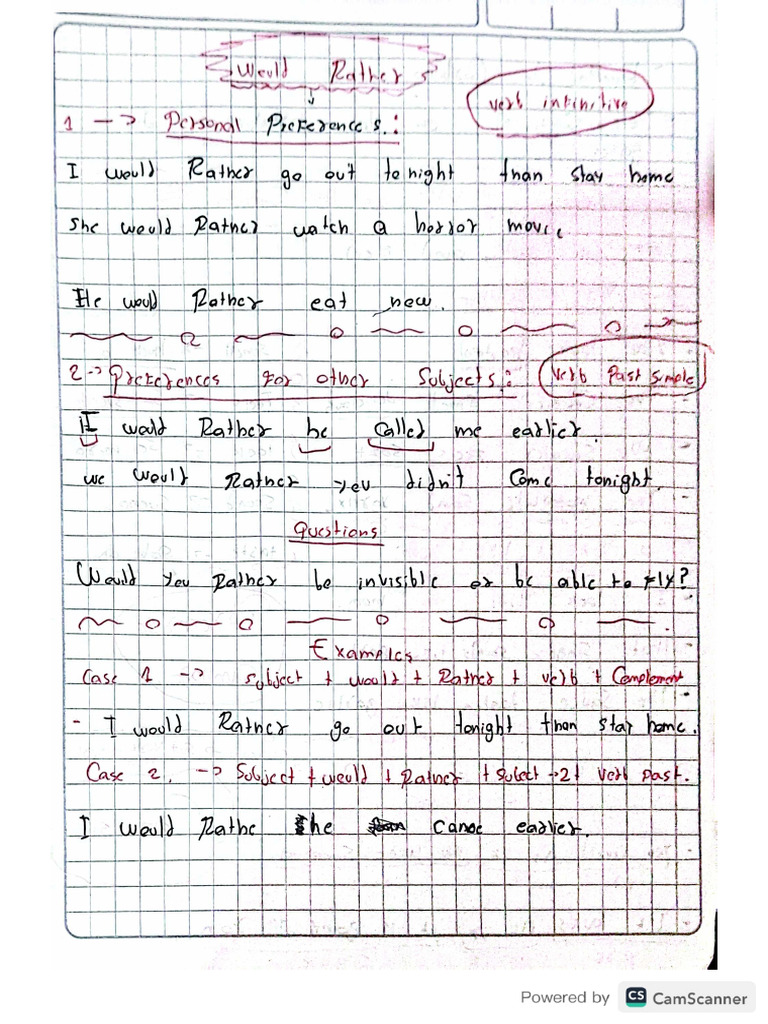 Would Rather
verb infinitive
1 -> Personal Preferences.:
I would Rather go out tonight than stay home
She would Rather watch a horror movie
He would Rather eat new.
2-> Preferences for other Subjects.: (Verb Past simple)
I would Rather he called me earlier.
we would Rather you didn't come tonight.
Questions
Would you Rather be invisible or be able to fly?
Examples
Case 1 -> subject + would + Rather + verb + Complement
- I would Rather go out tonight than stay home.
Case 2. -> Subject + would + Rather + subect -> 2 + verb past.
I would Rathe he earlier.
Powered by CS CamScanner